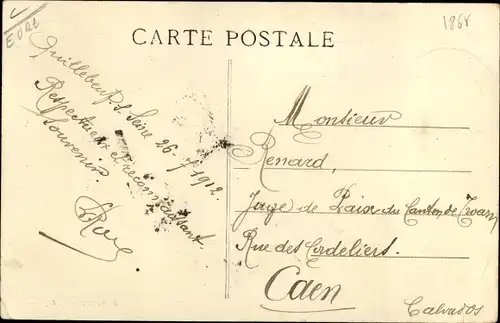 EURE
1868
CARTE POSTALE
Quillebeuf s. Seine
26-7 1912.
Respectueux et reconnaissant
Souvenir.
Monsieur
Renard,
Juge de Paix du Canton de Troarn
Rue des Cordeliers.
Caen
Calvados